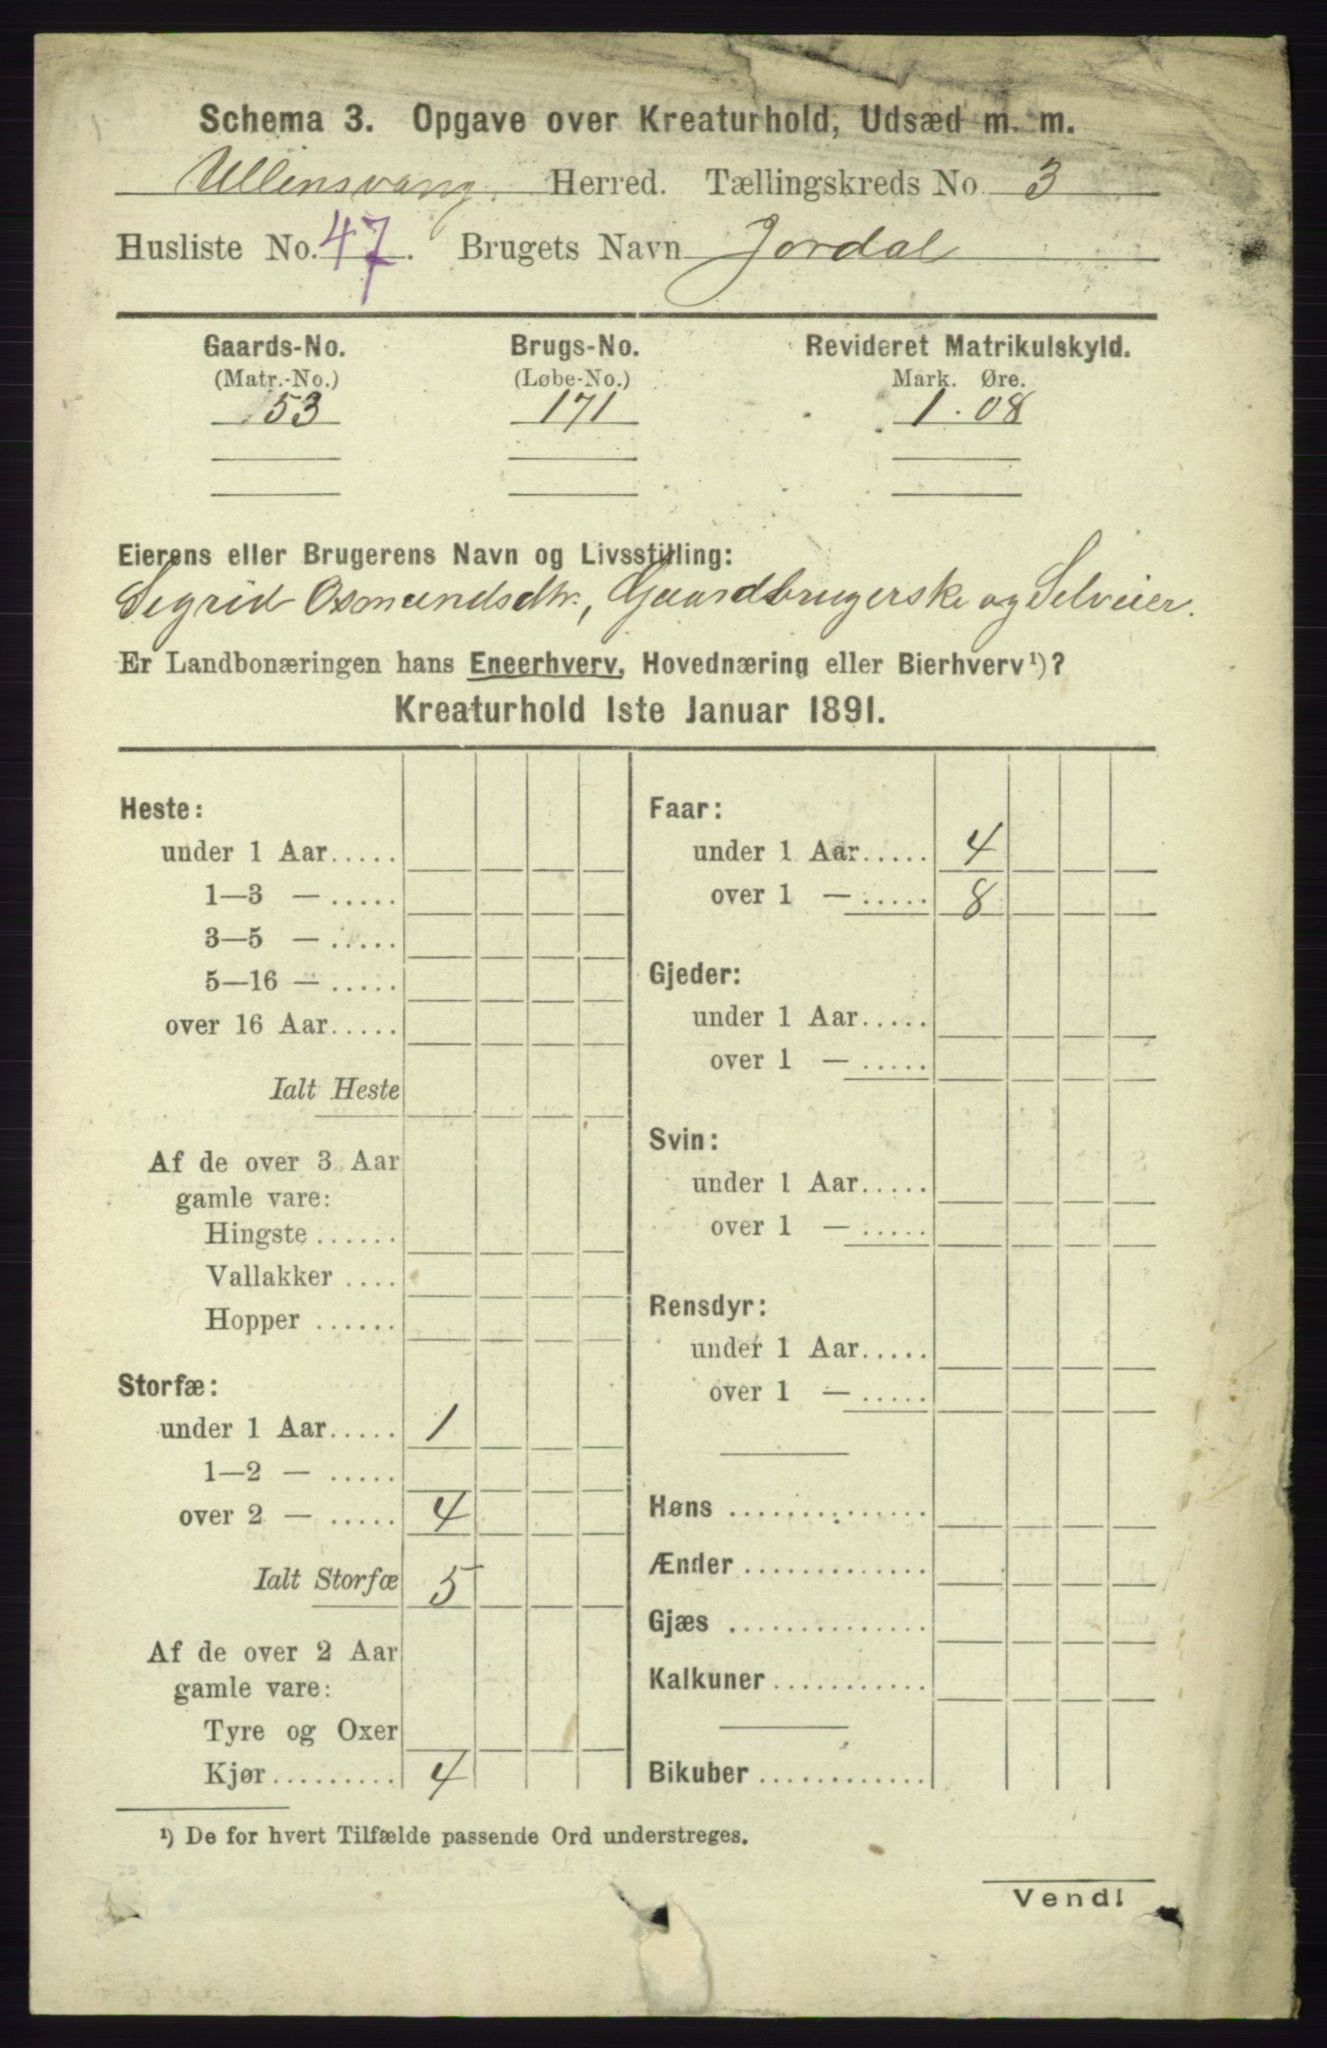 Schema 3. Opgave over Kreaturhold, Udsæd m. m.
Ullensvang Herred. Tællingskreds No. 3
Husliste No. 47. Brugets Navn Jordal
Gaards-No. Brugs-No. Revideret Matrikulskyld.
(Matr.-No.) (Løbe-No.) Mark. Øre.
53 171 1.08
Eierens eller Brugerens Navn og Livsstilling:
Sigrid Osmundsdtr., Gaardbrugerske og Selveier.
Er Landbonæringen hans Eneerhverv, Hovednæring eller Bierhverv¹)?
Kreaturhold 1ste Januar 1891.
Heste:
under 1 Aar.....
1—3 — .....
3—5 — .....
5—16 — .....
over 16 Aar.....
Ialt Heste
Af de over 3 Aar
gamle vare:
Hingste ......
Vallakker ....
Hopper ......
Storfæ:
under 1 Aar..... 1
1—2 — .....
over 2 — ..... 4
Ialt Storfæ 5
Af de over 2 Aar
gamle vare:
Tyre og Oxer
Kjør......... 4
Faar:
under 1 Aar..... 4
over 1 — ..... 8
Gjeder:
under 1 Aar.....
over 1 — .....
Svin:
under 1 Aar.....
over 1 — .....
Rensdyr:
under 1 Aar.....
over 1 — .....
Høns ..............
Ænder .............
Gjæs ..............
Kalkuner ...........
Bikuber ............
¹) De for hvert Tilfælde passende Ord understreges.
Vend!